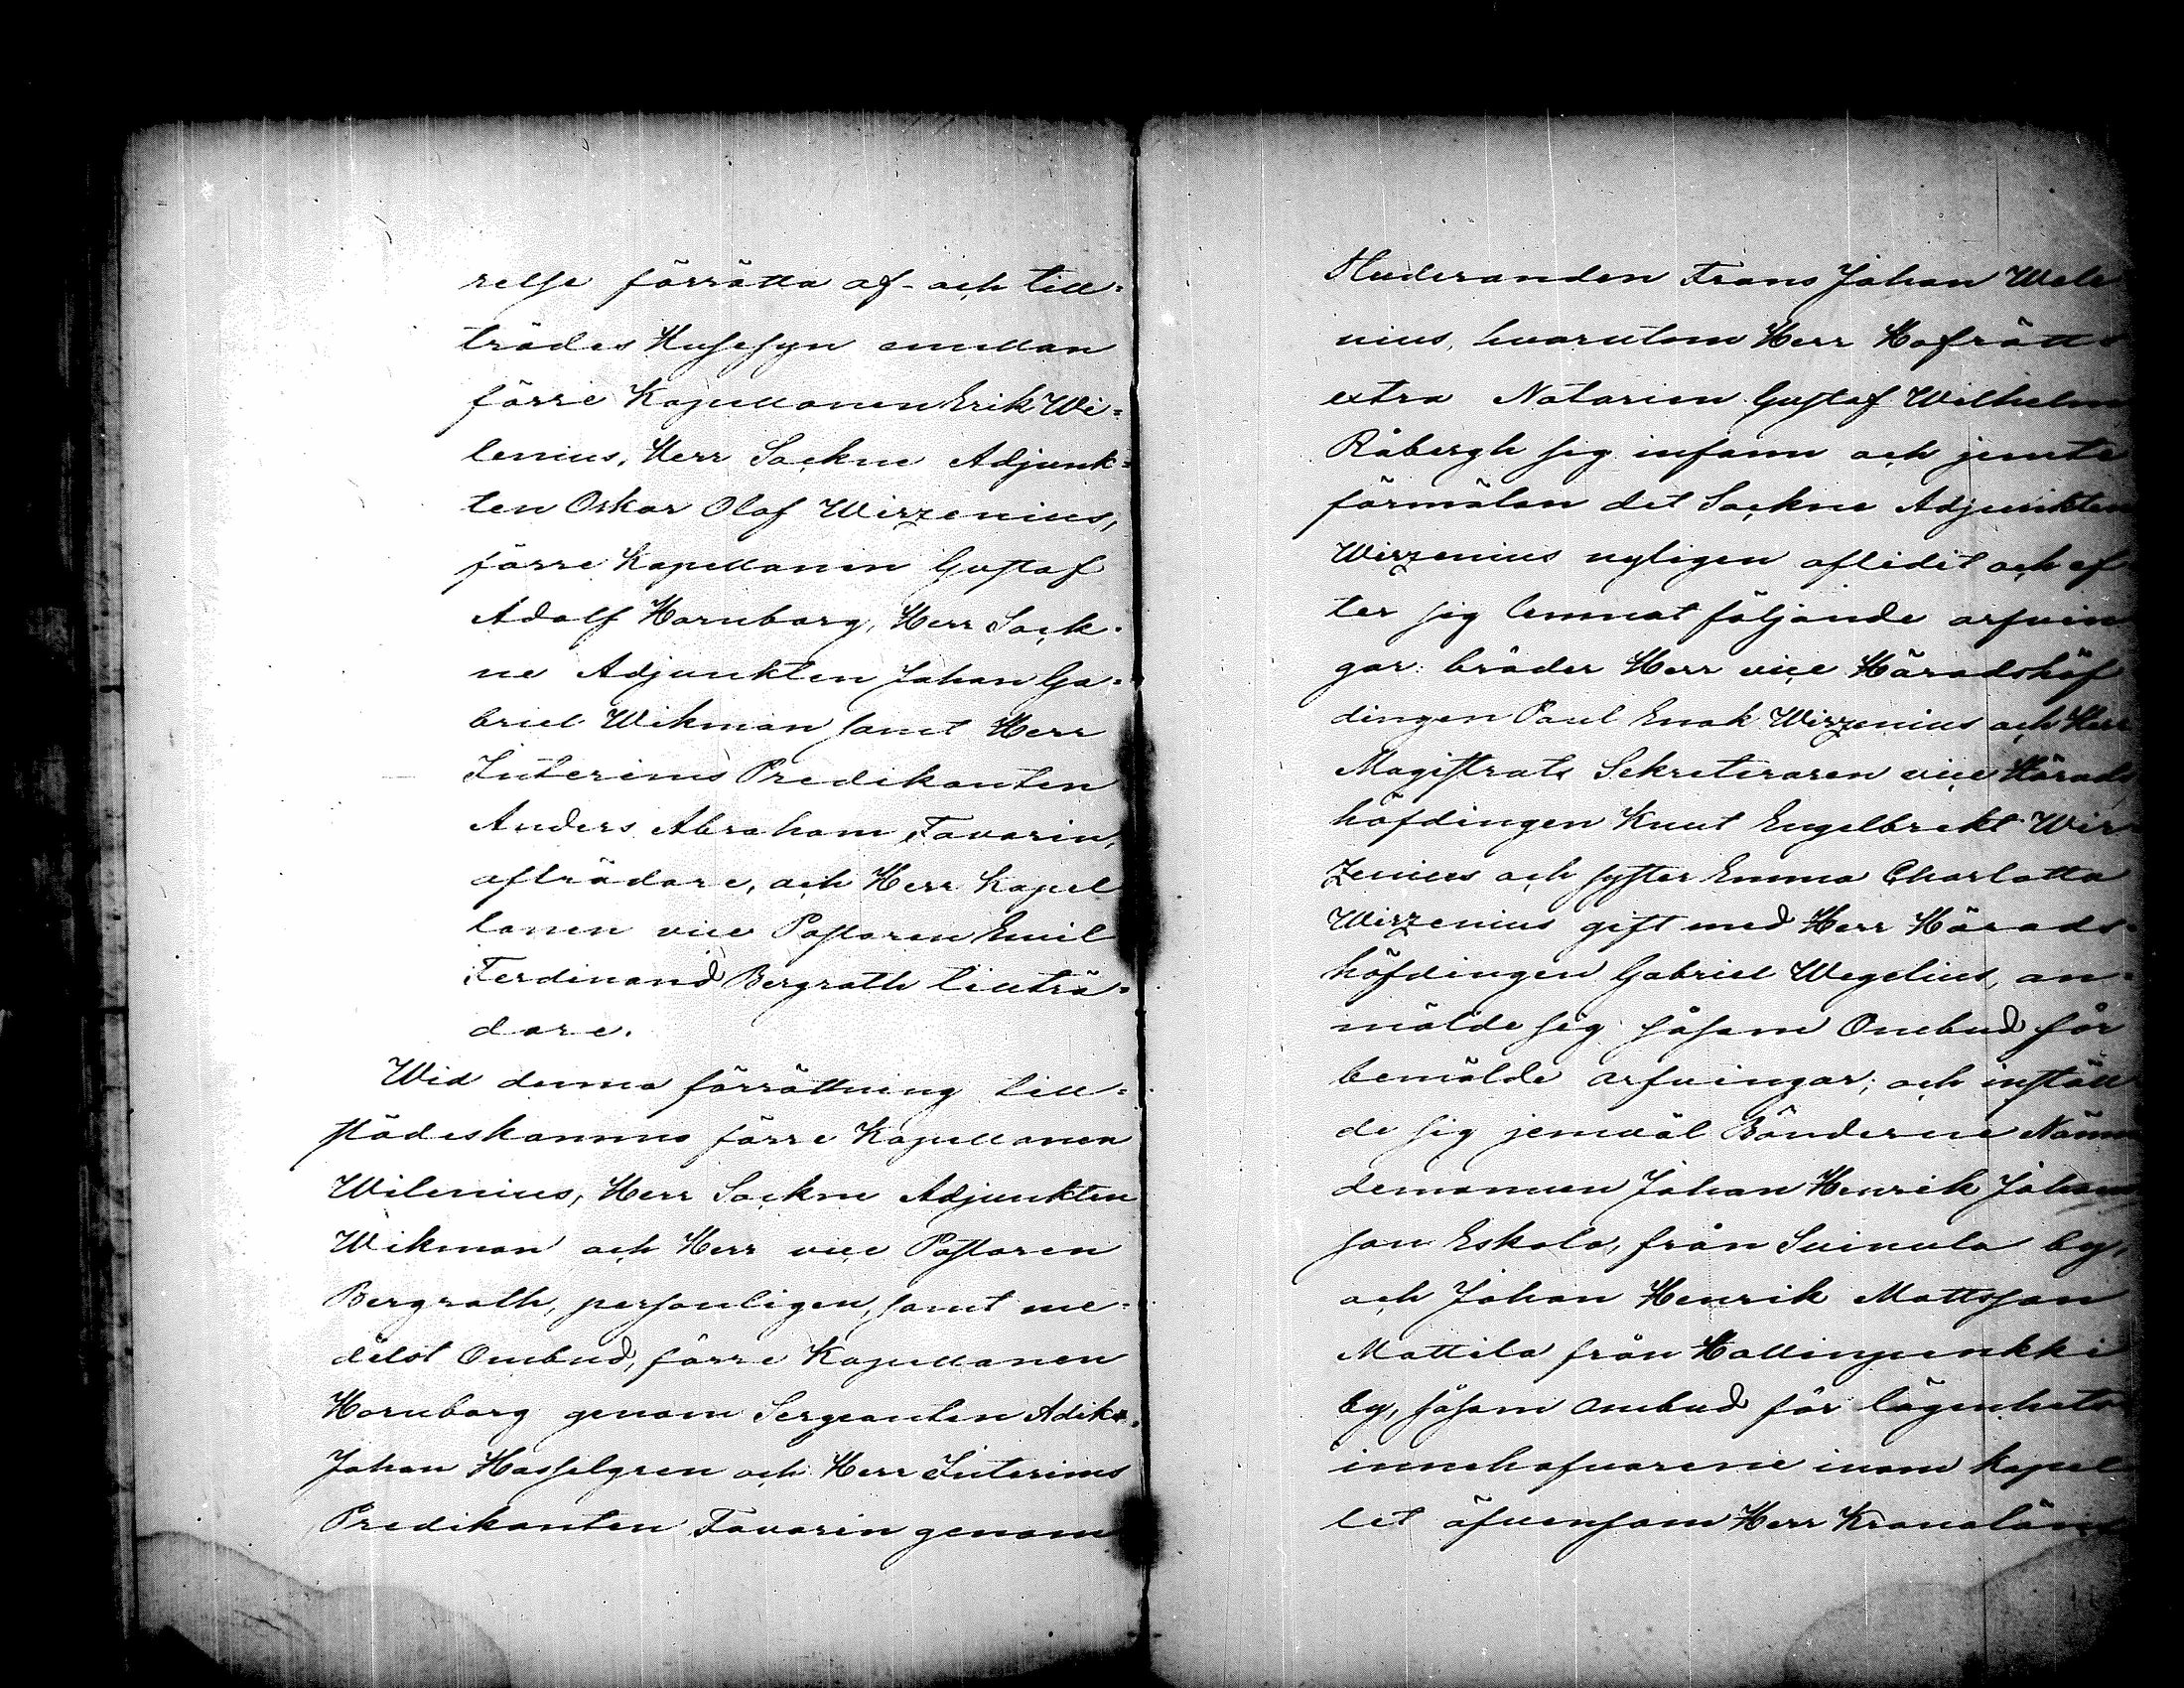 relse förrätta af- och till=
trädes Husesyn emellan
förre Kapellanen Erik Wi=
lenius, Herr Sockne Adjunk=
ten Oskar Olof Wirzenius,
förre Kapellanen Gustaf
Adolf Hornborg, Herr Sock-
ne Adjunkten Johan Ga=
briel Wikman samt Herr
Interims Predikanten
Anders Abraham Favorin,
afträdare, och Herr Kapel
lanen vice Pastoren Emil
Ferdinand Bergroth tillträ=
dare.
Wid denna förrättning till=
städeskommo förre Kapellanen
Wilenius, Herr Sockne Adjunkten
Wikman och Herr vice Pastoren
Bergroth, personligen, samt me=
delst Ombud, förre Kapellanen
Hornborg genom Sergeanten
Johan Hasselgren och Herr Interims
Predikanten Favorin genom
Studeranden Frans Johan Wele
nius, hvarutom Herr Hofrätts
extra Notarien Gustaf Wilhelm
Råbergh sig infann och jemte
förmälan det Sockne Adjunkten
Wirzenius nyligen aflidit och ef
ter sig lemnat följande arfvin
gar: bröder Herr vice Häradshöf
dingen Paul Enok Wirzenius och Herr
Magistrats Sekreteraren vice Härads
höfdingen Knut Engelbrekt Wir
zenius och syster Emma Charlotta
Wirzenius gift med Herr Härads=
höfdingen Gabriel Wegelius, an=
mälde sig såsom Ombud för
bemälde arfvingar; och inställ
de sig jemväl Bönderne Nämn
demannen Johan Henrik Johans
son Eskola, från Suinula by,
och Johan Henrik Mattsson
Mattila från Hallinpenkki
by, såsom ombud för lägenhets
innehafvarene inom kapel
let äfvensom Herr Kronoläns